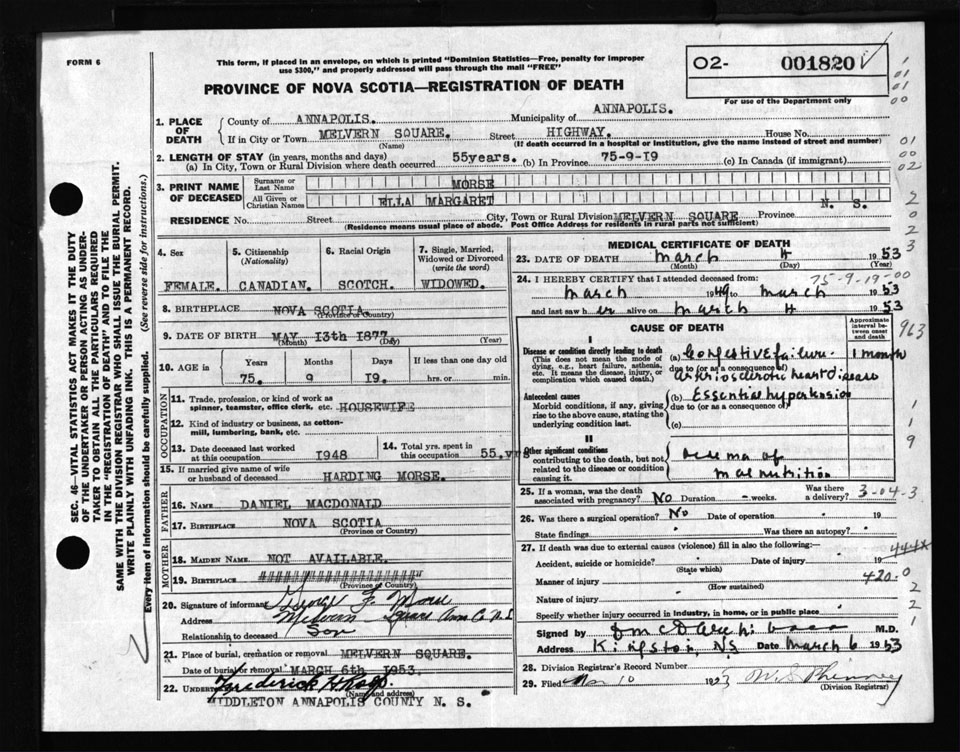 FORM 6
This form, if placed in an envelope, on which is printed "Dominion Statistics—Free, penalty for improper
use $300," and properly addressed will pass through the mail "FREE"
O2- 001820
For use of the Department only
PROVINCE OF NOVA SCOTIA—REGISTRATION OF DEATH
1. PLACE OF DEATH
County of ANNAPOLIS. Municipality of ANNAPOLIS.
If in City or Town MELVERN SQUARE. Street HIGHWAY. House No.
(Name) (If death occurred in a hospital or institution, give the name instead of street and number)
2. LENGTH OF STAY (in years, months and days)
(a) In City, Town or Rural Division where death occurred 55years. (b) In Province 75-9-I9 (c) In Canada (if immigrant)
3. PRINT NAME OF DECEASED
Surname or Last Name MORSE
All Given or Christian Names ELLA MARGARET
N. S.
RESIDENCE No. Street City, Town or Rural Division MELVERN SQUARE Province
(Residence means usual place of abode. Post Office Address for residents in rural parts not sufficient)
4. Sex
FEMALE.
5. Citizenship
(Nationality)
CANADIAN.
6. Racial Origin
SCOTCH.
7. Single, Married,
Widowed or Divorced
(write the word)
WIDOWED.
8. BIRTHPLACE NOVA SCOTIA
(Province or Country)
9. DATE OF BIRTH MAY 13th 1877
(Month) (Day)
10. AGE in
Years Months Days If less than one day old
75. 9 I9. hrs. or min.
OCCUPATION
11. Trade, profession, or kind of work as
spinner, teamster, office clerk, etc. HOUSEWIFE
12. Kind of industry or business, as cotton-
mill, lumbering, bank, etc.
13. Date deceased last worked
at this occupation 1948
14. Total yrs. spent in
this occupation 55.yrs
15. If married give name of wife
or husband of deceased HARDING MORSE.
FATHER
16. Name DANIEL MACDONALD
17. Birthplace NOVA SCOTIA
(Province or Country)
MOTHER
18. Maiden Name NOT AVAILABLE.
19. Birthplace
(Province or Country)
20. Signature of informant George F. Morse
Address Melvern Square Ann Co N.S
Relationship to deceased Son
21. Place of burial, cremation or removal MELVERN SQUARE.
Date of burial or removal MARCH 6th 1953.
22. UNDERTAKER Frederick
(Name and address)
MIDDLETON ANNAPOLIS COUNTY N. S.
MEDICAL CERTIFICATE OF DEATH
23. DATE OF DEATH March 4 1953
(Month) (Day) (Year)
24. I HEREBY CERTIFY that I attended deceased from: 75-9-19-00
March 1949 to March 1953
and last saw her alive on March 4 1953
CAUSE OF DEATH
Approximate interval between onset and death
I
Disease or condition directly leading to death
(This does not mean the mode of
dying, e.g., heart failure, asthenia,
etc. It means the disease, injury, or
complication which caused death.)
(a) Congestive failure 1 month
due to (or as a consequence of)
arteriosclerotic heart disease
Antecedent causes
Morbid conditions, if any, giving
rise to the above cause, stating the
underlying condition last.
(b) Essential hypertension
due to (or as a consequence of)
(c)
II
Other significant conditions
contributing to the death, but not
related to the disease or condition
causing it.
edema of
malnutrition
25. If a woman, was the death
associated with pregnancy? No Duration - weeks.
Was there
a delivery? 3-04-3
26. Was there a surgical operation? No Date of operation 19
State findings Was there an autopsy?
27. If death was due to external causes (violence) fill in also the following:
Accident, suicide or homicide? Date of injury 19
(State which)
444X
Manner of injury 420.0
(How sustained)
Nature of injury
Specify whether injury occurred in industry, in home, or in public place
Signed by M.D.
Address Kingston, NS Date March 6 1953
28. Division Registrar's Record Number
29. Filed 10 1953
(Division Registrar)
963
SEC. 46—VITAL STATISTICS ACT MAKES IT THE DUTY
OF THE UNDERTAKER OR PERSON ACTING AS UNDER-
TAKER TO OBTAIN ALL THE PARTICULARS REQUIRED
IN THE "REGISTRATION OF DEATH" AND TO FILE THE
SAME WITH THE DIVISION REGISTRAR WHO SHALL ISSUE THE BURIAL PERMIT.
WRITE PLAINLY WITH UNFADING INK. THIS IS A PERMANENT RECORD.
Every item of information should be carefully supplied. (See reverse side for instructions.)